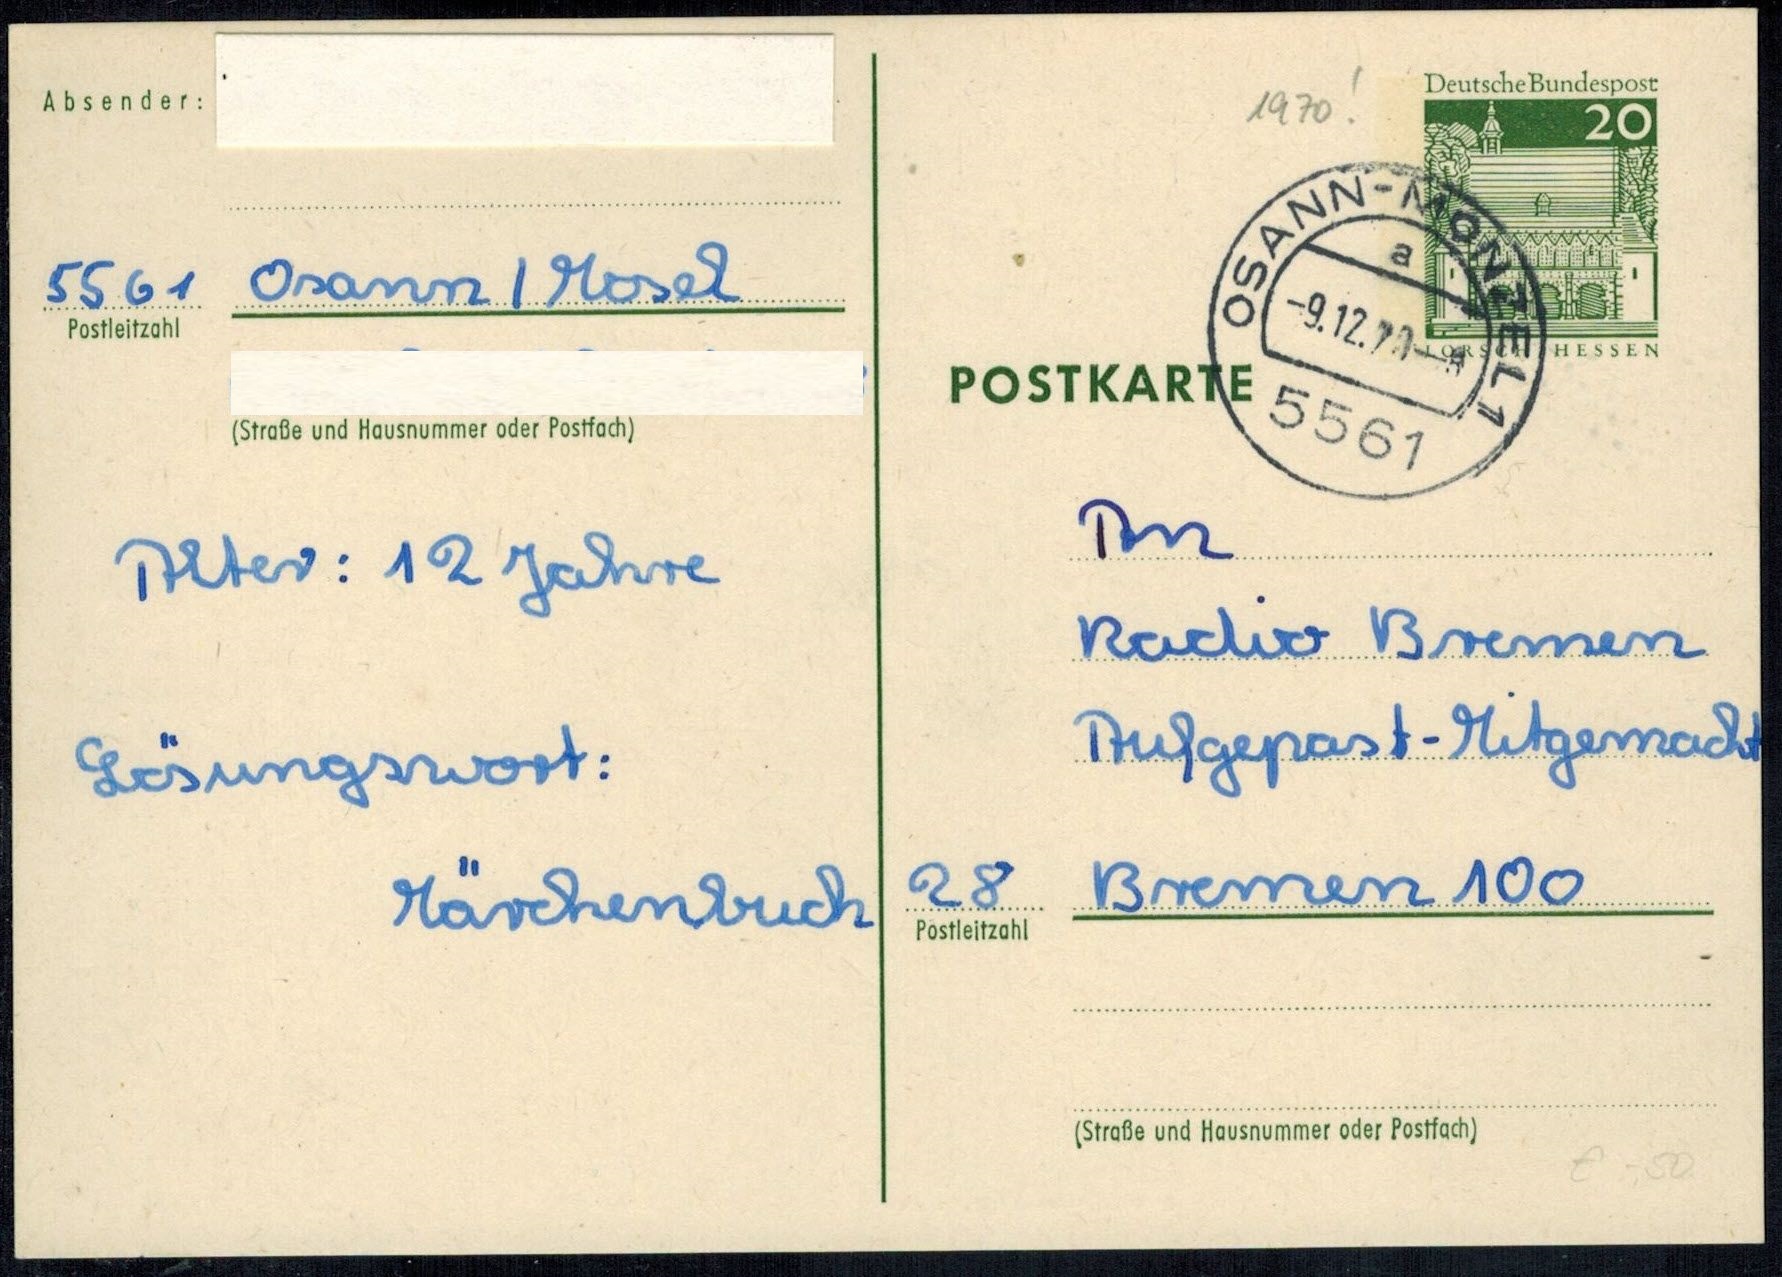 Absender:
5561 Osann / Mosel
Postleitzahl
(Straße und Hausnummer oder Postfach)
Alter: 12 Jahre
Lösungswort:
Märchenbuch
1970!
Deutsche Bundespost
20
LORSCH HESSEN
OSANN-MONZEL 1
a
-9.12.70
5561
POSTKARTE
An
Radio Bremen
Aufgepast-Mitgemacht
28 Bremen 100
Postleitzahl
(Straße und Hausnummer oder Postfach)
€ -,50